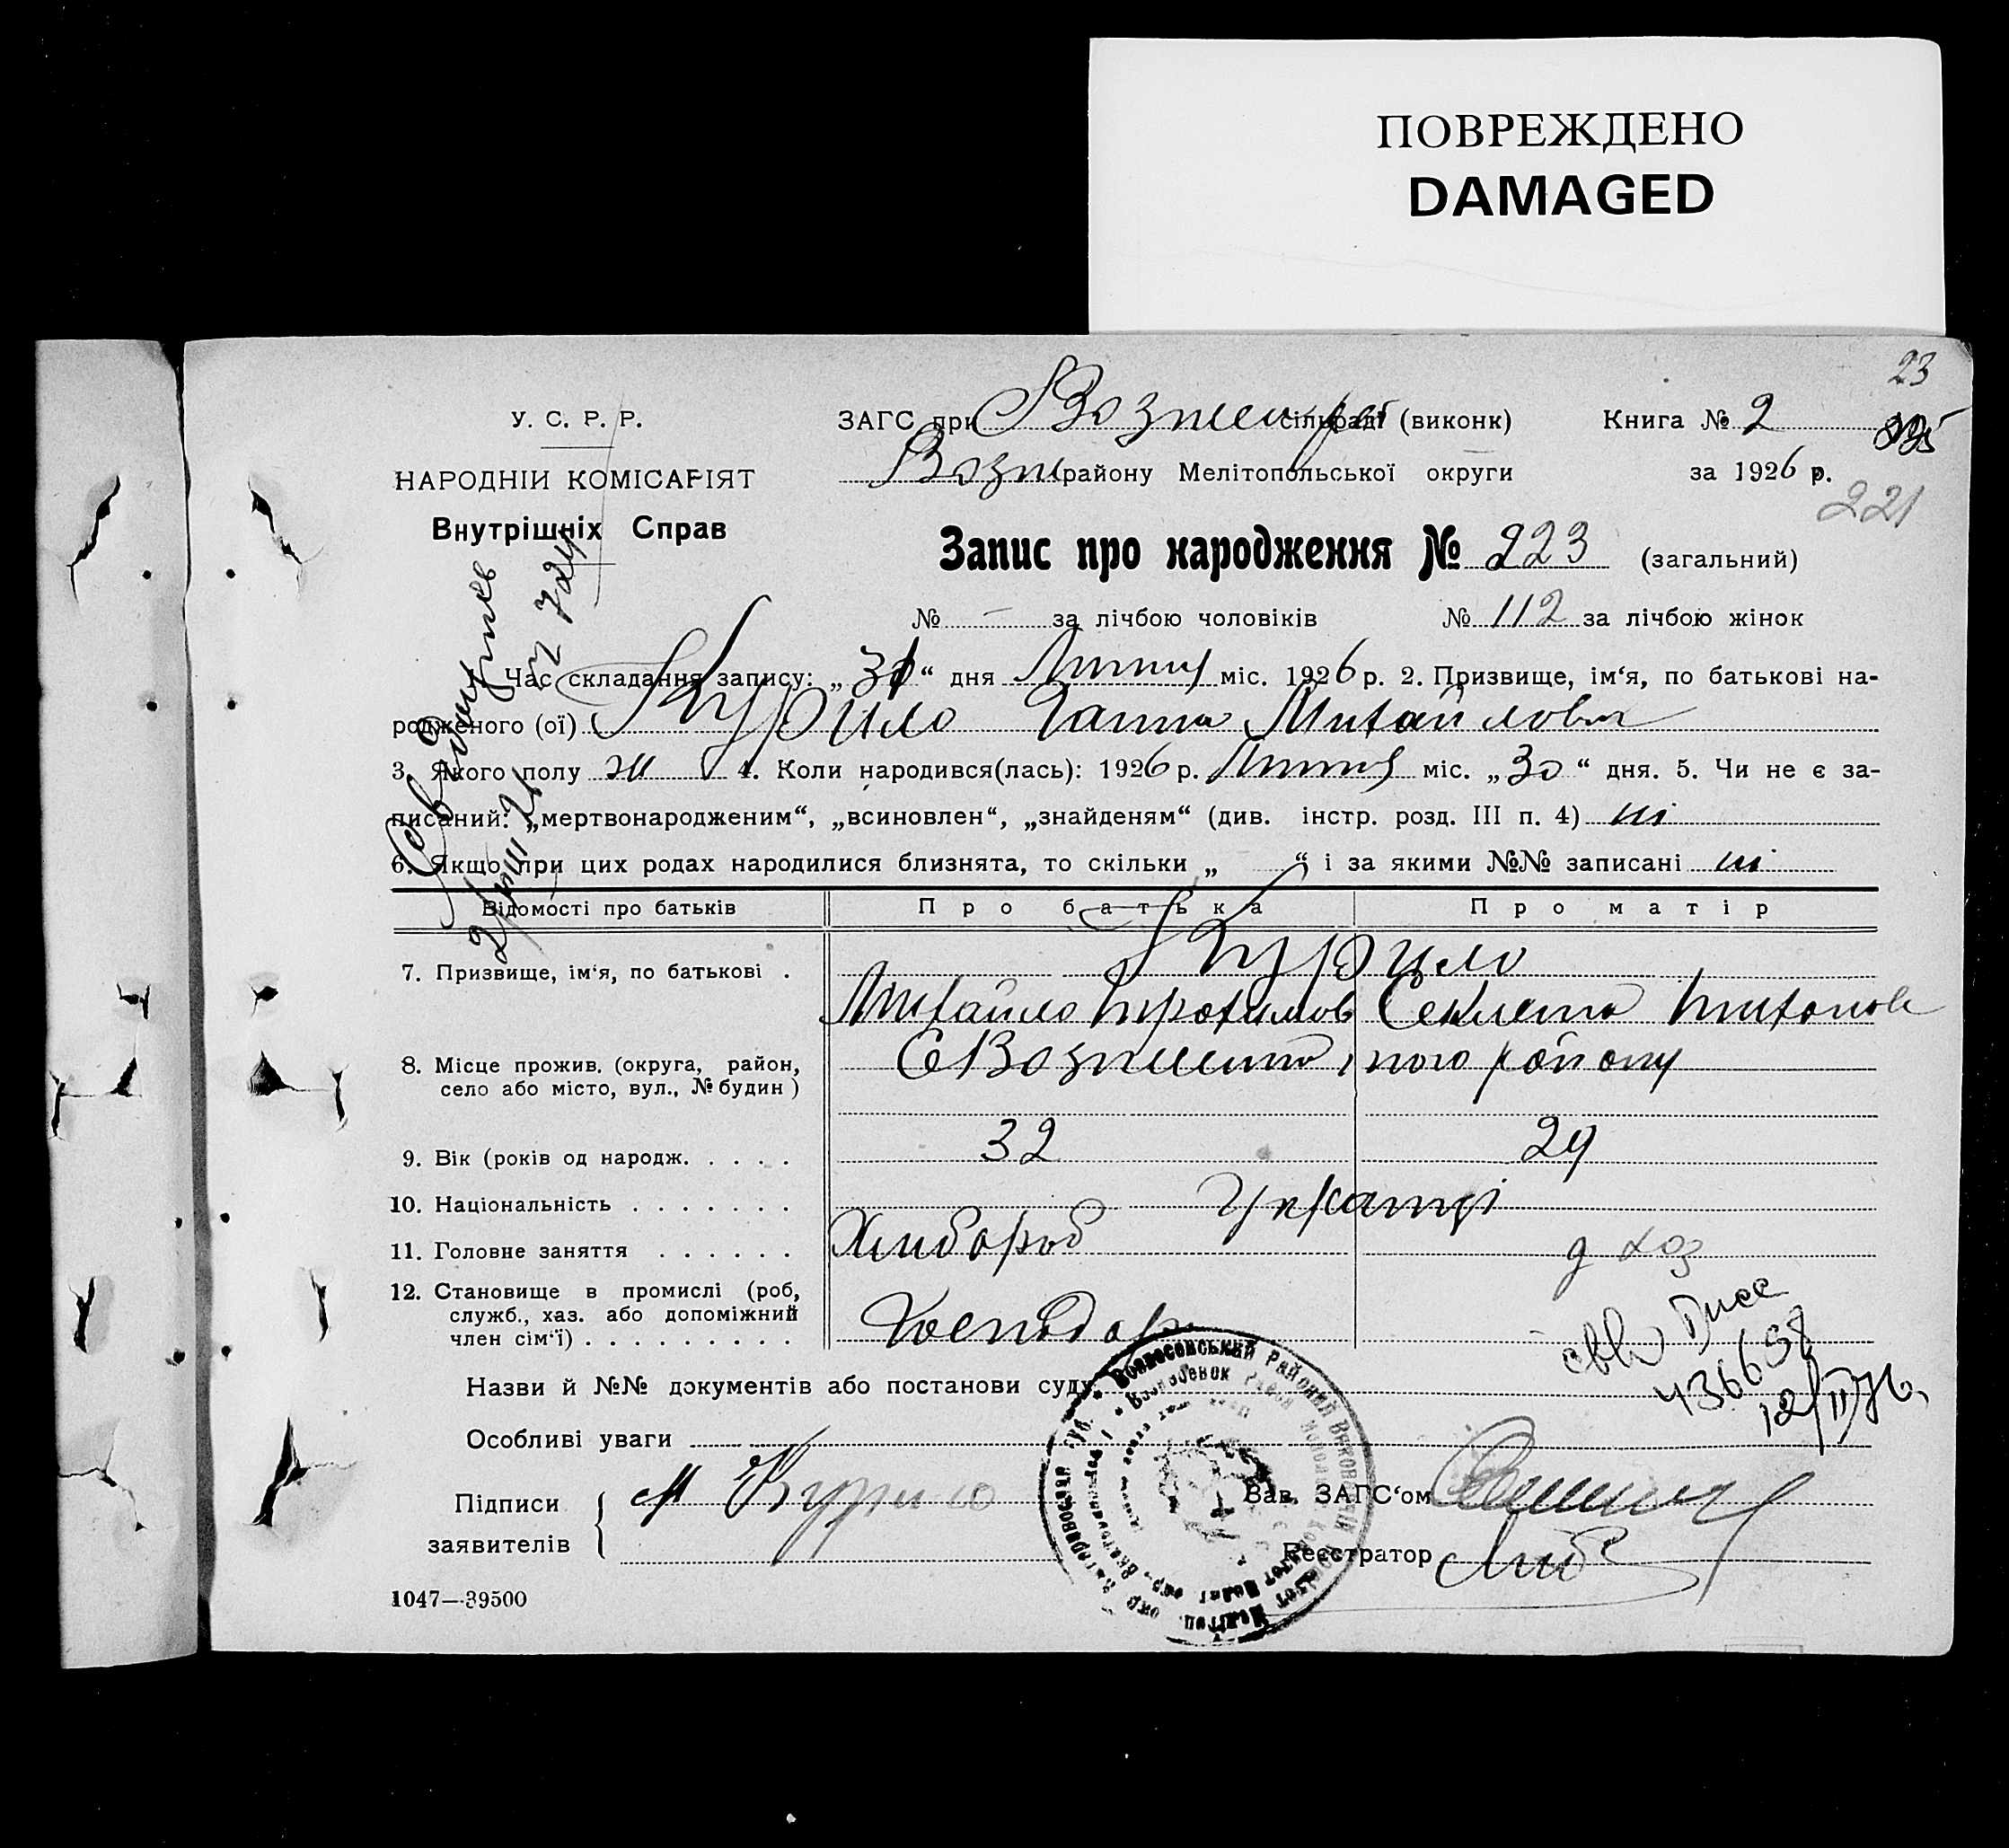 ПОВРЕЖДЕНО
DAMAGED
23
У. С. Р. Р.
ЗАГС при сільраді (виконк) Книга № 2
НАРОДНІЙ КОМІСАРІЯТ
Возн району Мелітопольської округи за 1926 р.
221
Внутрішніх Справ
Запис про народження № 223 (загальний)
№ — за лічбою чоловіків № 112 за лічбою жінок
Час складання запису: „31“ дня Липня міс. 1926 р. 2. Призвище, ім‘я, по батькові на-
родженого (ої) Курило Ганна Михайловна
3. Якого полу ж 4. Коли народився(лась): 1926 р. Липня міс. „30“ дня. 5. Чи не є за-
писаний: „мертвонародженим“, „всиновлен“, „знайденям“ (див. інстр. розд. III п. 4) ні
6. Якщо при цих родах народилися близнята, то скільки „ “ і за якими №№ записані ні
Відомості про батьків Про батька Про матір
7. Призвище, ім‘я, по батькові . Курило
Михайло Трохимов Секлета Тихонов
8. Місце прожив. (округа, район, село або місто, вул., № будин)
С Вознесенка, того району
9. Вік (років од народж. . . . . 32 29
10. Національність . . . . . . . Українці
11. Головне заняття . . . . . . Хлибороб д хоз
12. Становище в промислі (роб, служб., хаз. або допоміжний член сім‘ї) . . . . . . . . . Господар
436658
12/II 76.
Назви й №№ документів або постанови суду
Особливі уваги
Підписи заявителів М Курило
Зав. ЗАГС‘ом
Реєстратор
1047—39500